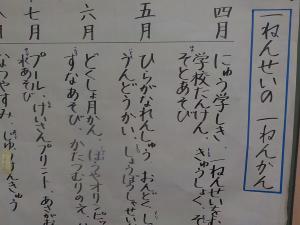 一ねんせいの一ねんかん
四月
にゅう学しき、一ねんせいをむ
学校たんけん、きゅうしょく、そ
そとあそび
五月
ひらがなれんしゅう おんどく、し
うんどうかい、しょうぼうしゃせい
六月
どくしょ月かん、ぼうやオリンピッ
すなあそび、かたつむりのえ、
七月
プール、けいさんプリント、あさがお
水あそび
なつやすみ、じゆうけんきゅう
十